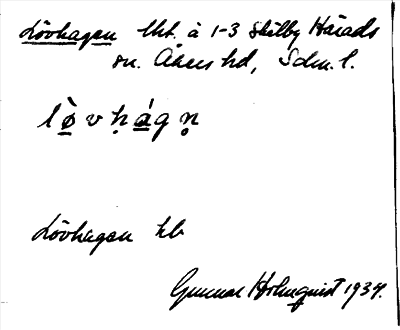 Lövhagen lht. å 1-3 Skälby Härads
sn. Åkers hd, Sdm. l.
lo̱̍vḥa̱̍gṇ
Lövhagen hb
Gunnar Holmquist 1934.